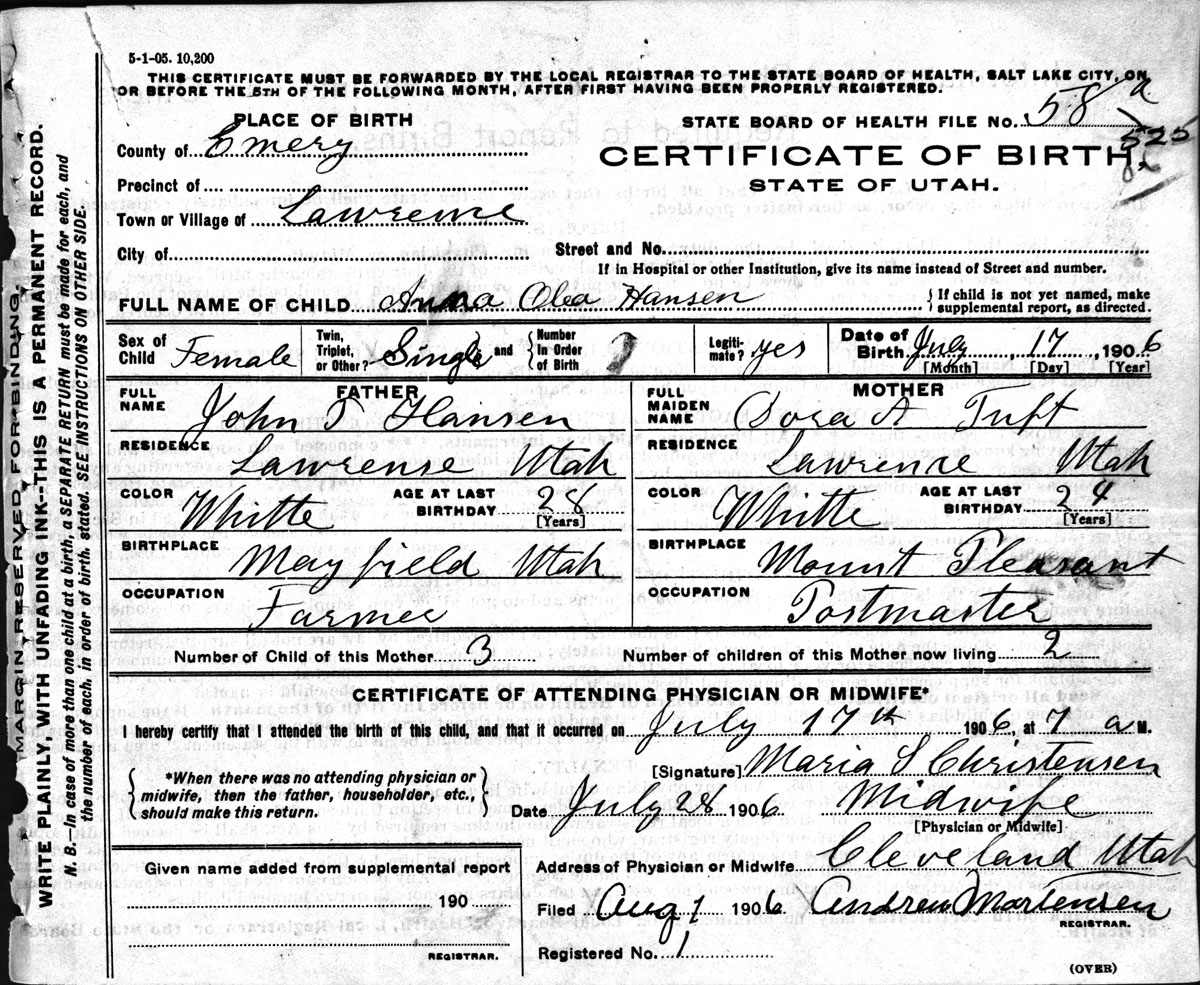 5-1-05. 10,200
THIS CERTIFICATE MUST BE FORWARDED BY THE LOCAL REGISTRAR TO THE STATE BOARD OF HEALTH, SALT LAKE CITY, ON
OR BEFORE THE 5TH OF THE FOLLOWING MONTH, AFTER FIRST HAVING BEEN PROPERLY REGISTERED.
PLACE OF BIRTH
STATE BOARD OF HEALTH FILE No. 58 a
525
County of Emery
CERTIFICATE OF BIRTH,
Precinct of
STATE OF UTAH.
Town or Village of Lawrence
City of
Street and No.
If in Hospital or other Institution, give its name instead of Street and number.
FULL NAME OF CHILD Anna Olea Hansen
{ If child is not yet named, make
supplemental report, as directed.
Sex of Child Female
Twin, Triplet, or Other? Single and { Number in Order of Birth
Legiti-mate? yes
Date of Birth July, 17, 1906
[Month] [Day] [Year]
FATHER
FULL NAME John T Hansen
MOTHER
FULL MAIDEN NAME Dora A Tuft
RESIDENCE Lawrense Utah
RESIDENCE Lawrense Utah
COLOR Whitte AGE AT LAST BIRTHDAY 28 [Years]
COLOR Whitte AGE AT LAST BIRTHDAY 24 [Years]
BIRTHPLACE Mayfield Utah
BIRTHPLACE Mount Pleasant
OCCUPATION Farmer
OCCUPATION Postmaster
Number of Child of this Mother 3 Number of children of this Mother now living 2
CERTIFICATE OF ATTENDING PHYSICIAN OR MIDWIFE*
I hereby certify that I attended the birth of this child, and that it occurred on July 17th 1906, at 7 a M.
{ *When there was no attending physician or
midwife, then the father, householder, etc.,
should make this return. }
[Signature] Maria S Christensen
Date July 28 1906 Midwife
[Physician or Midwife]
Given name added from supplemental report
190
REGISTRAR.
Address of Physician or Midwife Cleveland Utah
Filed Aug 1 1906 Andrew Mortensen
REGISTRAR.
Registered No. 1
(OVER)
MARGIN RESERVED FOR BINDING
WRITE PLAINLY, WITH UNFADING INK--THIS IS A PERMANENT RECORD.
N. B.—In case of more than one child at a birth, a SEPARATE RETURN must be made for each, and
the number of each, in order of birth, stated. SEE INSTRUCTIONS ON OTHER SIDE.